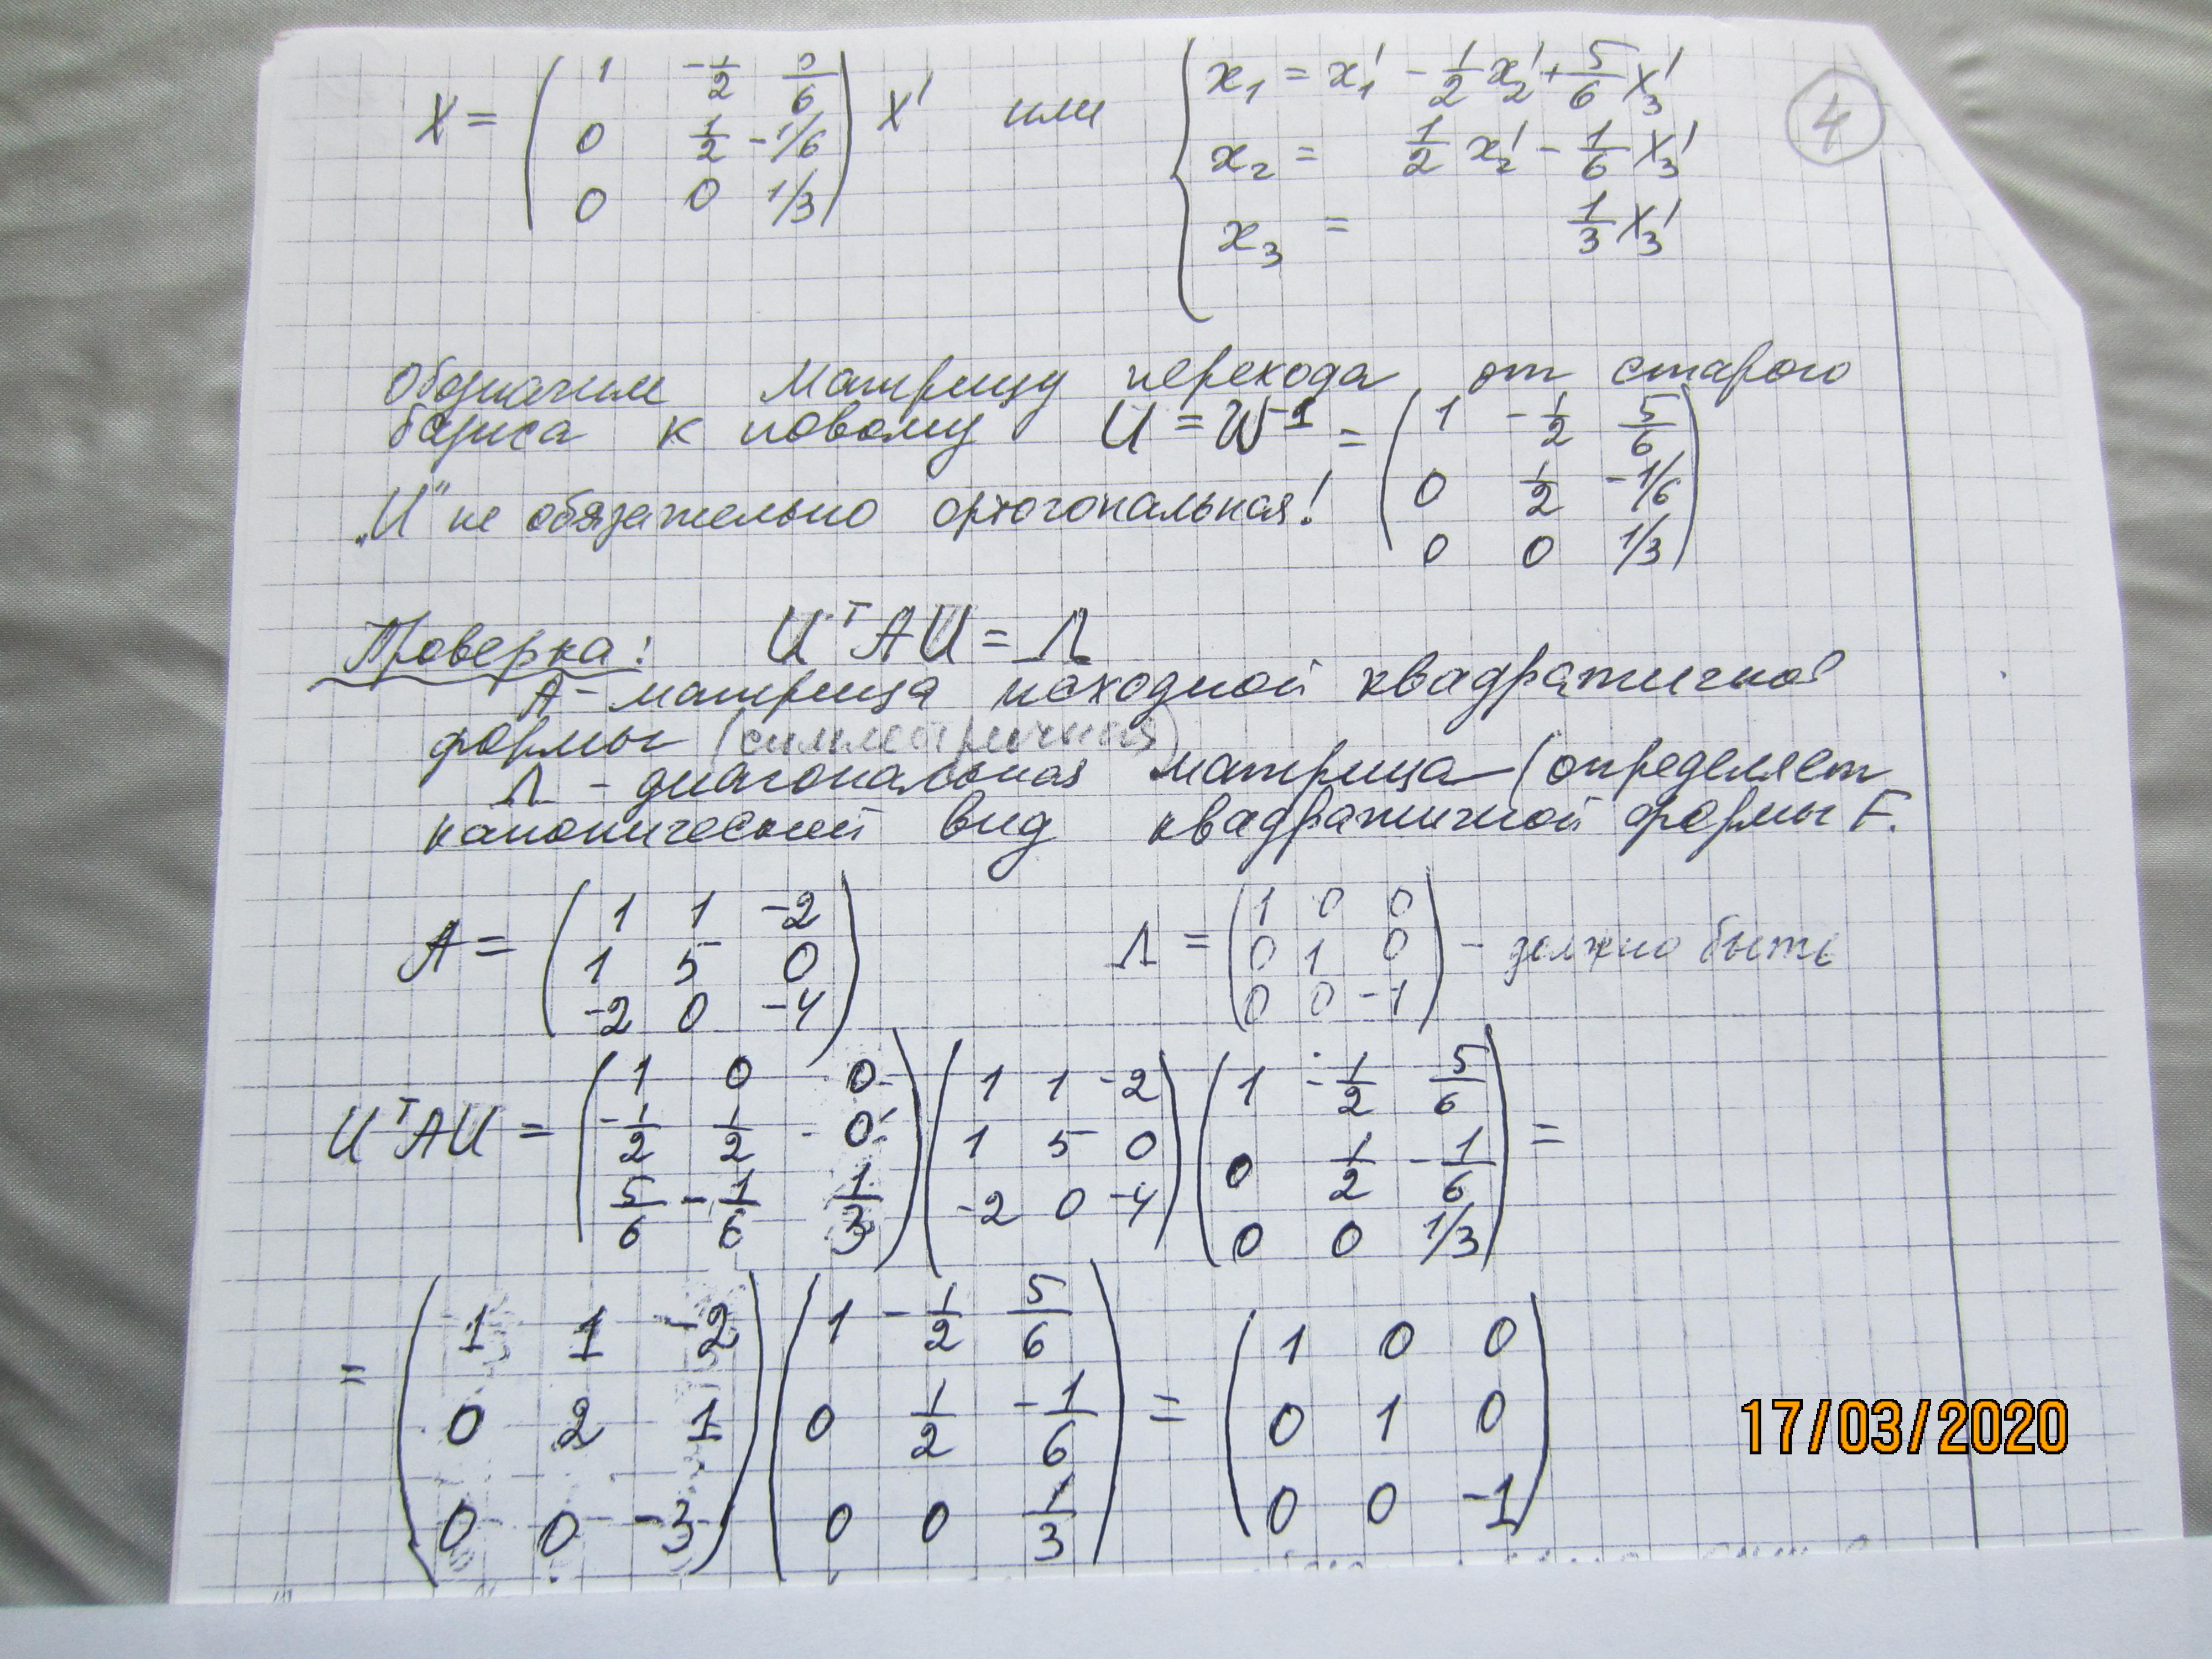 X = ( 1 -1/2 5/6 ; 0 1/2 -1/6 ; 0 0 1/3 ) X' или { x₁ = x₁' - 1/2 x₂' + 5/6 x₃'
x₂ = 1/2 x₂' - 1/6 x₃'
x₃ = 1/3 x₃'
4
Обозначим матрицу перехода от старого
базиса к новому U = W⁻¹ = ( 1 -1/2 5/6 ; 0 1/2 -1/6 ; 0 0 1/3 )
„U" не обязательно ортогональная!
Проверка: UᵀAU = Λ
A - матрица исходной квадратичной
формы (симметричная)
Λ - диагональная матрица (определяет
канонический вид квадратичной формы F.
A = ( 1 1 -2 ; 1 5 0 ; -2 0 -4 ) Λ = ( 1 0 0 ; 0 1 0 ; 0 0 -1 ) - должно быть
UᵀAU = ( 1 0 0 ; -1/2 1/2 0 ; 5/6 -1/6 1/3 ) ( 1 1 -2 ; 1 5 0 ; -2 0 -4 ) ( 1 -1/2 5/6 ; 0 1/2 -1/6 ; 0 0 1/3 ) =
= ( 1 1 -2 ; 0 2 1 ; 0 0 -3 ) ( 1 -1/2 5/6 ; 0 1/2 -1/6 ; 0 0 1/3 ) = ( 1 0 0 ; 0 1 0 ; 0 0 -1 )
17/03/2020